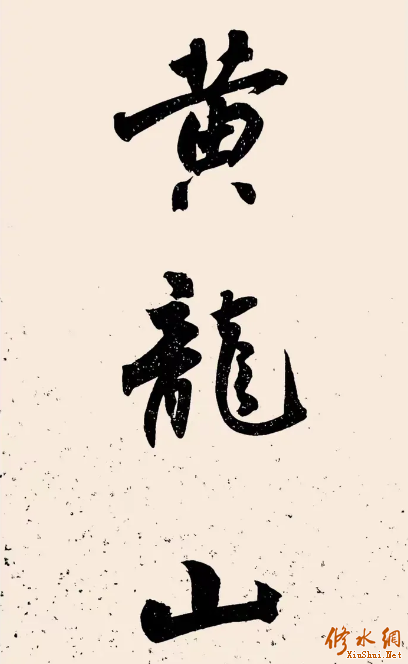 黄
龍
山
修水網
XiuShui.Net